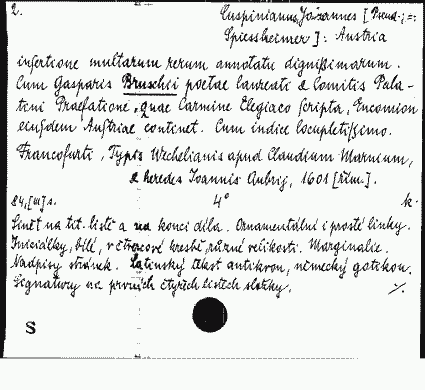 2. Cuspinianus, Joannes [Pseud.; =:
Spiessheimer]: Austria
insertione multarum rerum annotatu dignissimarum.
Cum Gasparis Bruschii poetae laureati & Comitis Pala-
tini Praefatione, quae Carmine Elegiaco scripta, Encomion
eiusdem Austriae continet. Cum indice locupletissimo.
Francofurti, Typis Wechelianis apud Claudium Marnium,
& heredes Ioannis Aubrij, 1601 [řím.].
84, s. 4° k.
Signet na tit. listě a na konci díla. Ornamentální i prosté linky.
Iniciálky, bílé, v čtvercové kresbě, různé velikosti. Marginalie.
Nadpisy stránek. Latinský tekst antikvou, německý gotikou.
Signatury na prvních čtyřech listech složky. ./.
S